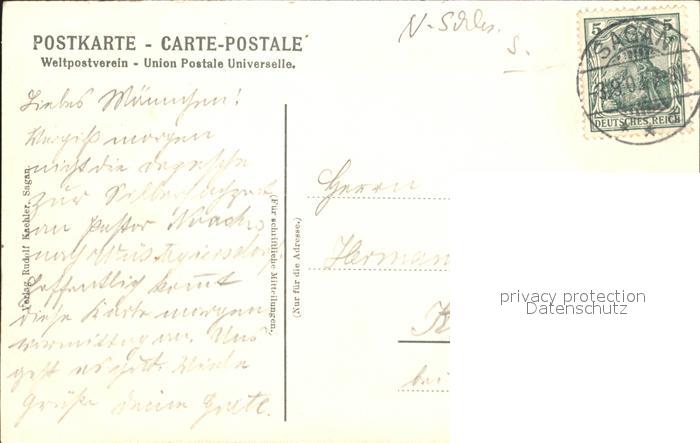 POSTKARTE - CARTE-POSTALE
Weltpostverein - Union Postale Universelle.
N-Schles.
S.
5 5
SAGAN
DEUTSCHES REICH
Liebes Männchen!
Vergiß morgen
nicht die Depesche
zur Silberhochzeit
an Pastor Noack
nach Wüstegiersdorf!
Hoffentlich kommt
diese Karte morgen
vormittag an. Uns
geht es gut. Viele
Grüße Deine Grete.
Verlag Rudolf Kaehler, Sagan.
(Für schriftliche Mitteilungen.)
(Nur für die Adresse.)
Herrn
Herman
K
bei
privacy protection
Datenschutz